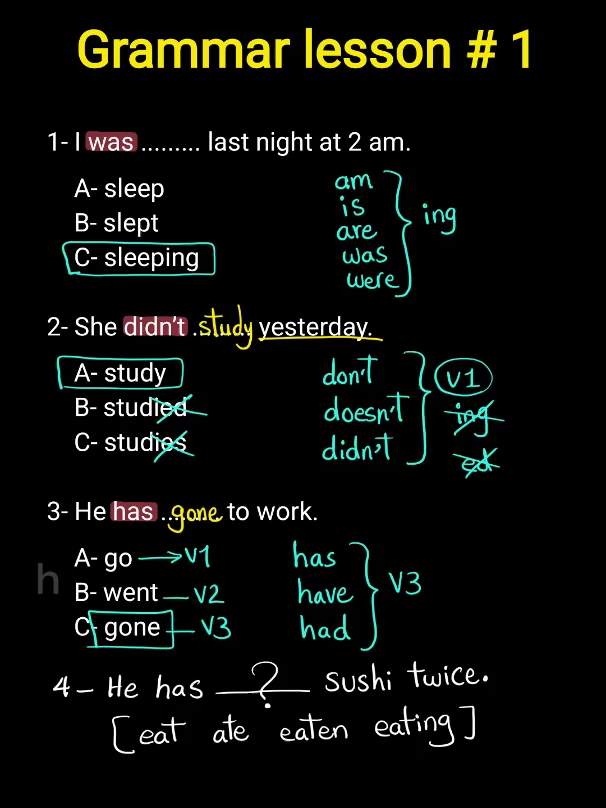 Grammar lesson # 1
1- I was ......... last night at 2 am.
A- sleep
B- slept
C- sleeping
am
is
are
was
were
ing
2- She didn't study yesterday.
A- study
B- studied
C- studies
don't
doesn't
didn't
V1
ing
ed
3- He has ...gone to work.
A- go → V1
B- went — V2
C- gone — V3
has
have
had
V3
h
4- He has ___?___ sushi twice.
[eat ate eaten eating]